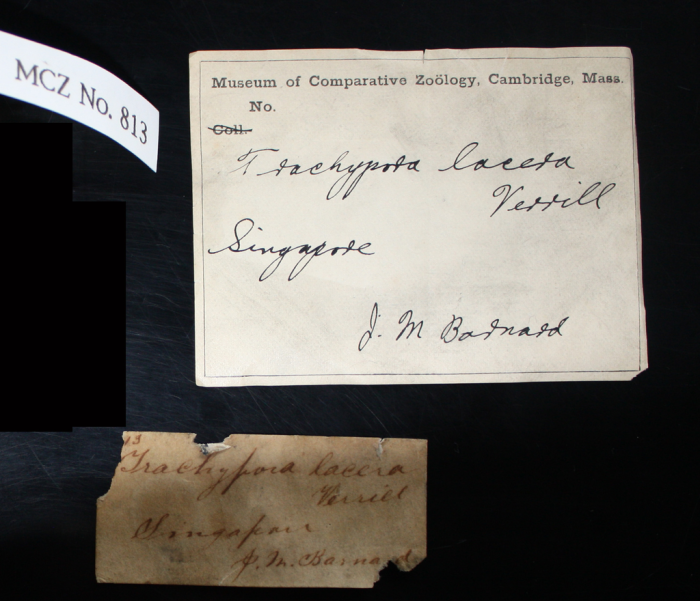 MCZ No. 813
Museum of Comparative Zoölogy, Cambridge, Mass.
No.
Coll.
Trachypora lacera
Verrill
Singapore
J. M Barnard
13
Trachypora lacera
Verrill
Singapore
J. M. Barnard